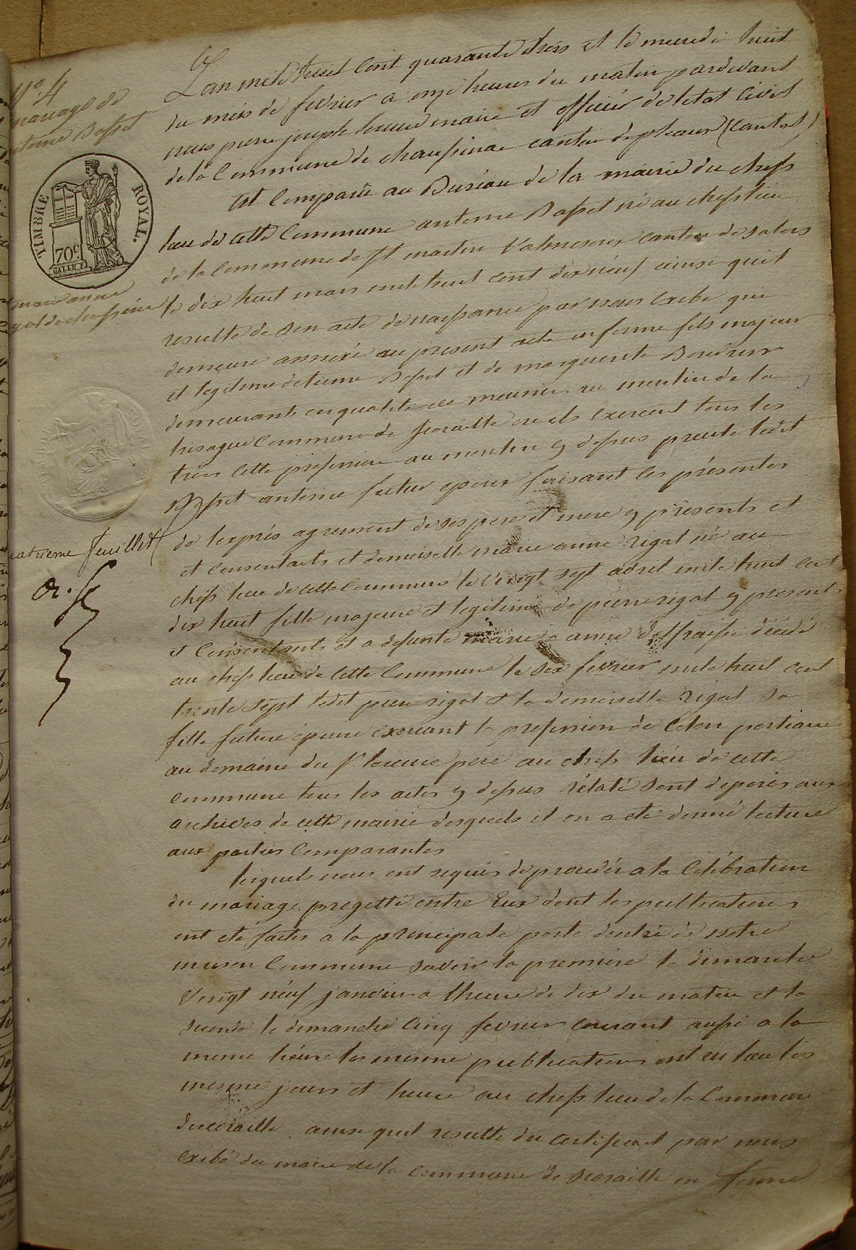 N° 4
mariage de
antoine Basset
TIMBRE ROYAL.
70c
marie anne
rigal de chaussenac
quatrieme feuillet
L'an mil huit cent quarante trois et le mercredi huit
du mois de fevrier a onze heures du matin pardevant
nous pierre joseph maire et officier de letat Civil
de la Commune de chaussenac canton de pleaux (Cantal)
est Comparu au Bureau de la mairie du chef
lieu de cette Commune antoine Basset né au chef lieu
de la Commune de St martin Valmeroux canton de salers
le dix huit mars mil huit cent dix neuf ainsi quil
resulte de son acte de naissance par nous exibé qui
demeure annéxé au present acte en forme fils majeur
et legitime detienne Basset et de marguerite
demeurants en qualité de meunier au moulin de la
Commune de Scoraille ou ils exercent tous les
trois cette profession au moulin cy dessus precité ledit
Basset antoine futur epoux faisant les présentes
de l'exprés agrement de ses pere et mere cy présents et
et Consentants et demoiselle marie anne rigal né au
chef lieu de cette Commune le vingt sept avril mil huit cent
dix huit fille majeure et legitime de pierre rigal cy present
et Consentants et a defunte marie anne décédé
au chef lieu de cette Commune le six fevrier mil huit cent
trente sept ledit pierre rigal et la demoiselle rigal sa
fille future epouse exercant la profession de Colon partiaire
au domaine du Sr pere au chef lieu de cette
commune tous les actes cy dessus rélaté sont deposés aux
archives de cette mairie desquels il en a eté donné lecture
aux parties Comparantes
lesquels nous ont requis de proceder a la Célébration
du mariage progetté entre Eux dont les publications
ont eté faites a la principale porte dentré de notre
maison Commune savoir la premiere le dimanche
vingt néuf janvier a lheure de dix du matin et la
seconde le dimanche Cinq fevrier courant aussi a la
meme heure les mesme publications ont eu lieu les
mesme jours et heure au chef lieu de la Commune
descoraille ainsi quil resulte du certificat par nous
exibé du maire de la commune de scoraille en forme